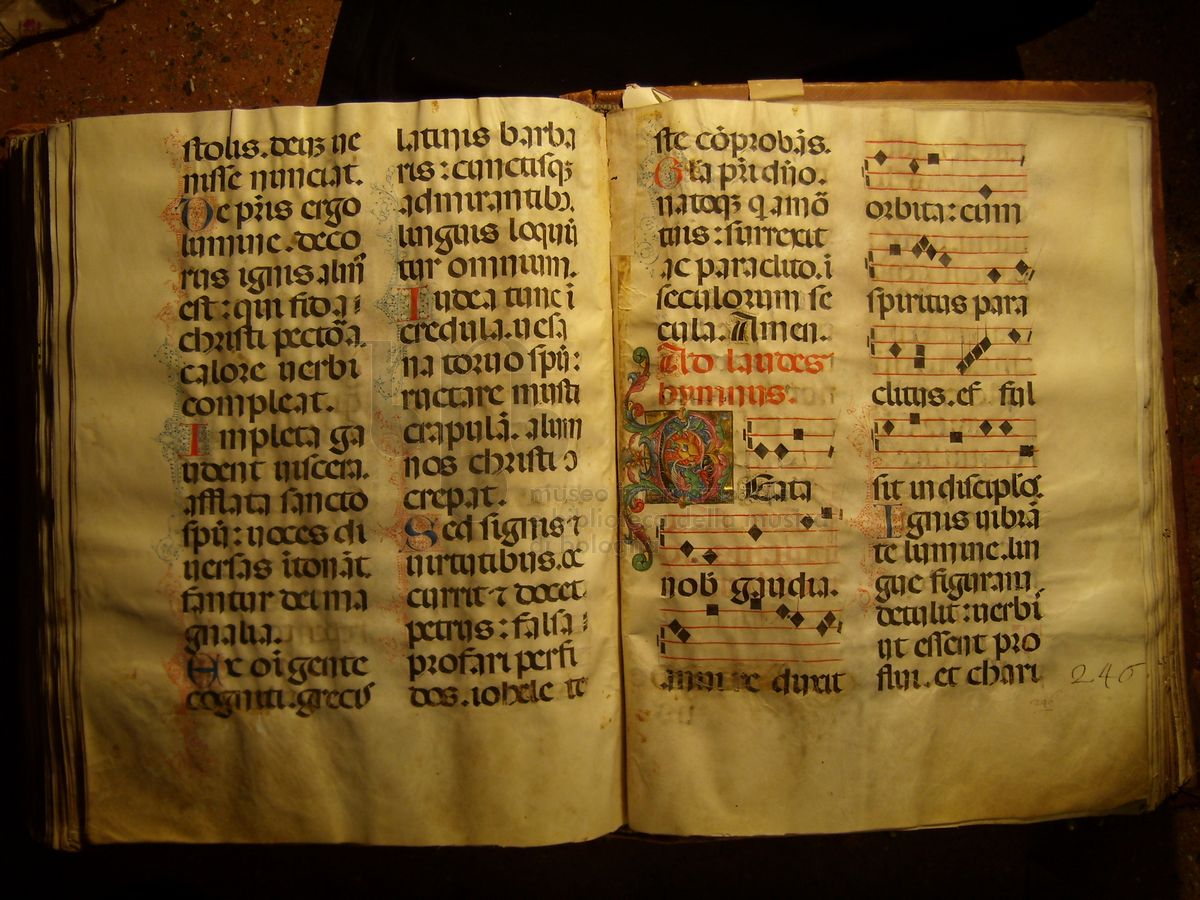 stolis. deuȝ ue
nisse nunciat.
De pr̃is ergo
lumine. deco
rus ignis alm̃
est: qui fida
christi pectõa.
calore uerbi
compleat.
Impleta ga
udent uiscera.
afflata sancto
sp̃u: uoces di
uersas ĩtonãt.
fantur dei ma
gnalia.
Ex oĩ gente
cogniti. grecis
latinis barba
ris: cunctisqȝ
admirantibȝ.
linguis loquũ
tur omnium.
Iudea tunc ĩ
credula. uesa
na toruo sp̃u:
ructare musti
crapulã. alum
nos christi ɔ
crepat.
Sed signis ⁊
uirtutibus. oc
currit ⁊ docet
petrus: falsa
profari perfi
dos. iohele te
ste cõprobãs.
Gl̃ia pr̃i dñо.
natoqȝ q amõ
tuis: surrexit
ac paraclito. ĩ
seculorum se
cula. Amen.
Ad laudes
hymnus.
BEata
nob̃ gaudia.
anni re duxit
orbita: cum
spiritus para
clitus. ef ful
sit in discip̃los.
Ignis uibrã
te lumine. lin
gue figuram
detulit: uerbĩ
ut essent pro
flui. et chari
246
museo
biblioteca della musica
bologna